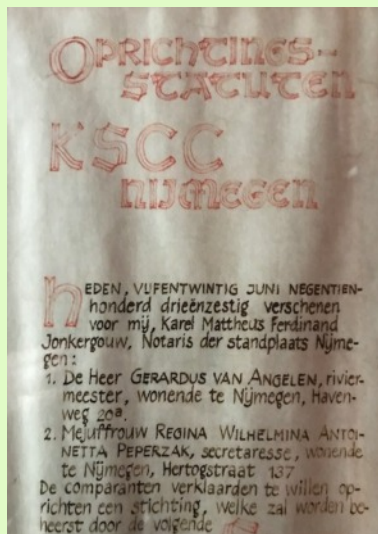 OPRICHTINGS-
STATUTEN
KSCC
NIJMEGEN
HEDEN, VIJFENTWINTIG JUNI NEGENTIEN-
honderd drieënzestig verschenen
voor mij, Karel Mattheus Ferdinand
Jonkergouw, Notaris der standplaats Nijme-
gen:
1. De Heer GERARDUS VAN ANGELEN, rivier-
meester, wonende te Nijmegen, Haven-
weg 20a.
2. Mejuffrouw REGINA WILHELMINA ANTOI-
NETTA PEPERZAK, secretaresse, wonende
te Nijmegen, Hertogstraat 137
De comparanten verklaarden te willen op-
richten een stichting, welke zal worden be-
heerst door de volgende